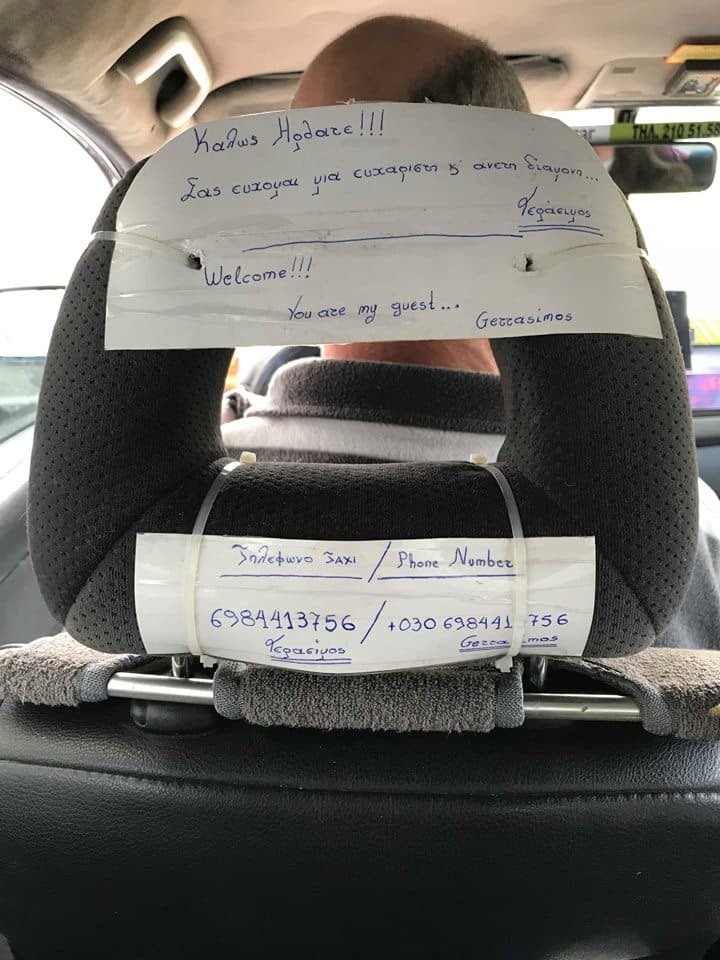 Καλως Ηρθατε!!!
Σας ευχομαι για ευχαριστη κ' ανετη διαμονη...
Γεράσιμος
Welcome!!!
You are my guest...
Gerrasimos
Τηλεφωνο ΤΑΧΙ / Phone Number
6984413756 / +030 698441 756
Γεράσιμος Gerra imos
ΤΗΛ. 210 51.59